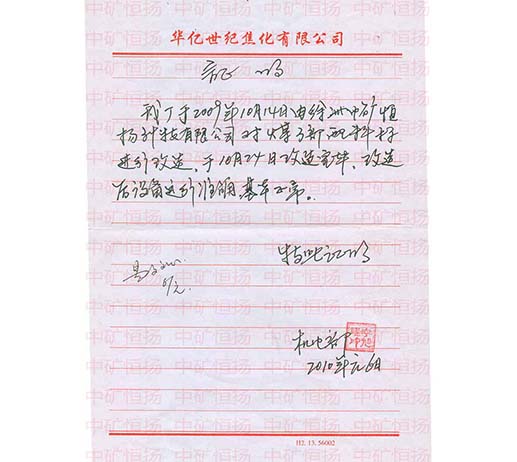 华亿世纪焦化有限公司
证 明
我厂于2009年10月14日由徐州中矿恒
扬科技有限公司对焦子新配料秤
进行改造，于10月24日改造完毕，改造
后设备运行准确基本正常。
特此证明
机电部
2010年元.6日
H2. 13. 56002
中矿恒扬